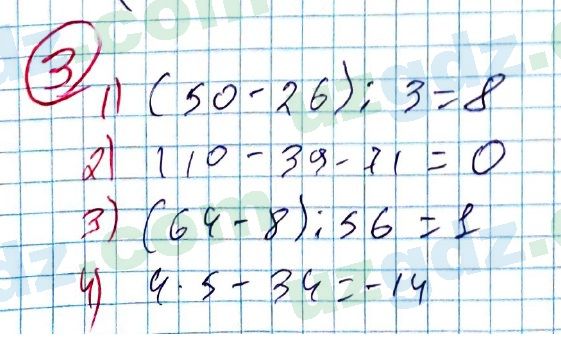 3
1) (50 - 26) : 3 = 8
2) 110 - 39 - 71 = 0
3) (64 - 8) : 56 = 1
4) 4 · 5 - 34 = -14